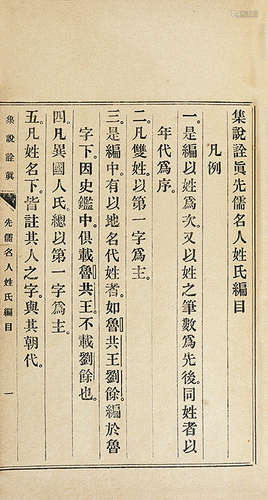 集說詮眞先儒名人姓氏編目
凡例
一。是編以姓爲次。又以姓之筆數爲先後。同姓者以
年代爲序。
二。凡雙姓。以第一字爲主。
三。是編中有以地名代姓者。如魯共王劉餘。編於魯
字下。因史鑑中。俱載魯共王。不載劉餘也。
四。凡異國人氏。總以第一字爲主。
五。凡姓名下。皆註其人之字與其朝代。
集說詮眞
先儒名人姓氏編目
一